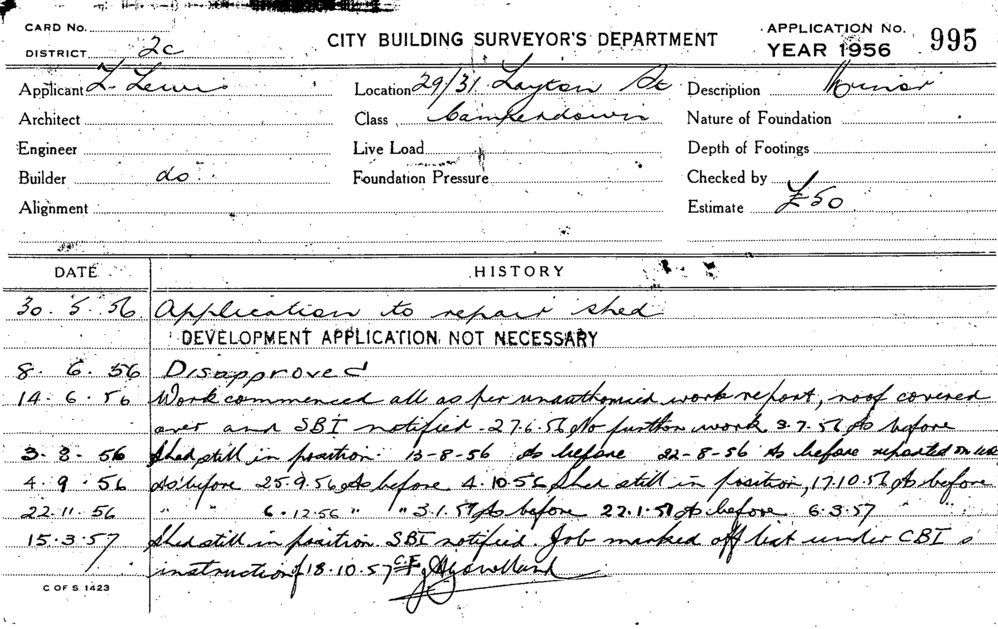 CARD No.
DISTRICT 2c
CITY BUILDING SURVEYOR'S DEPARTMENT
APPLICATION No. 995
YEAR 1956
Applicant L. Lewis Location 29/31 Layton St Description Minor
Architect Class Camperdown Nature of Foundation
Engineer Live Load Depth of Footings
Builder do Foundation Pressure Checked by
Alignment Estimate £50
DATE HISTORY
30. 5. 56 Application to repair shed
DEVELOPMENT APPLICATION NOT NECESSARY
8. 6. 56 Disapproved
14. 6. 56 Work commenced all as per unauthorised work report, roof covered
over and SBI notified. 27.6.56 No further work 3.7.56 As before
3-8-56 Shed still in position. 13-8-56 As before 22-8-56 As before reported on
4.9.56 As before 25.9.56 As before 4.10.56 Shed still in position, 17.10.56 As before
22.11.56 " " 6.12.56 " " 3.1.57 As before 22.1.57 As before 6.3.57 " "
15.3.57 Shed still in position. SBI notified. Job marked off list under CBI s
instruction of 18.10.57
C OF S. 1423